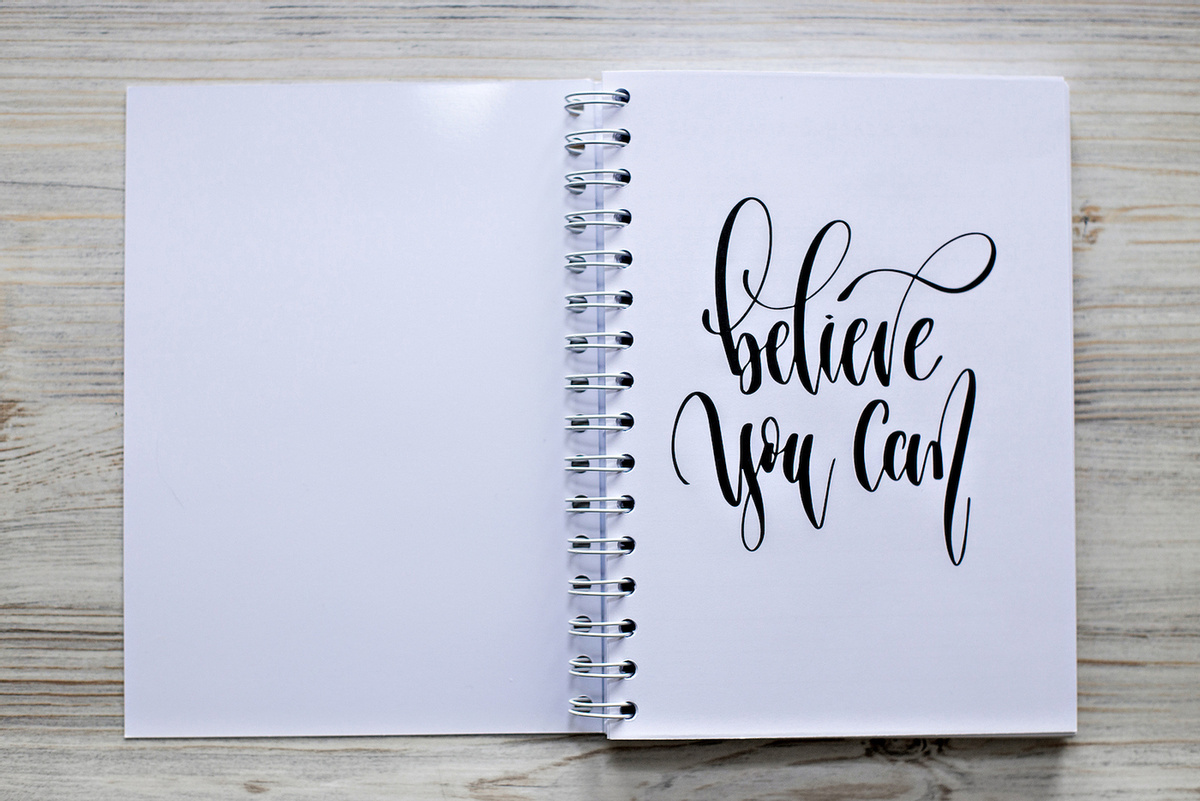 believe
you can